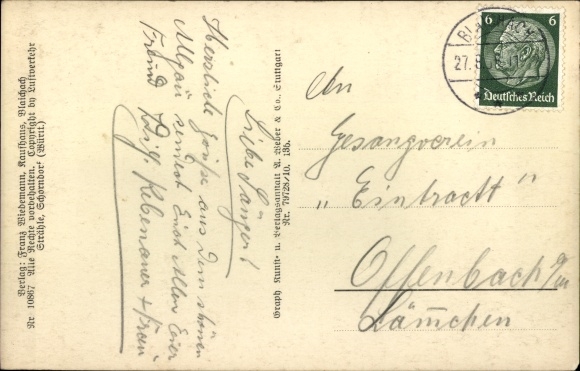 Liebe Sänger!
Herzliche Grüße aus dem schönen
Allgäu sendet Euch Allen Euer
Freund Ludg. Rebenauer + Frau
An
Gesangverein
„Eintracht"
Offenbach a/M
Lämchen
6 6
Deutsches Reich
BLAICHACH
27.
Graph. Kunst- u. Verlagsanstalt A. Weber & Co., Stuttgart
Nr. 79728/10. 136.
Verlag: Franz Wiedemann, Kaufhaus, Blaichach
Nr. 10867 Alle Rechte vorbehalten. Copyright by Luftverkehr
Strähle, Schorndorf (Württ.)